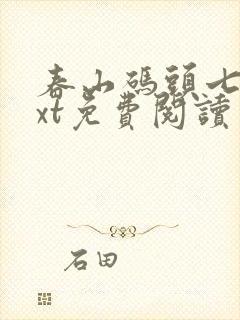 春山碼頭七
xt免費閱讀
石田